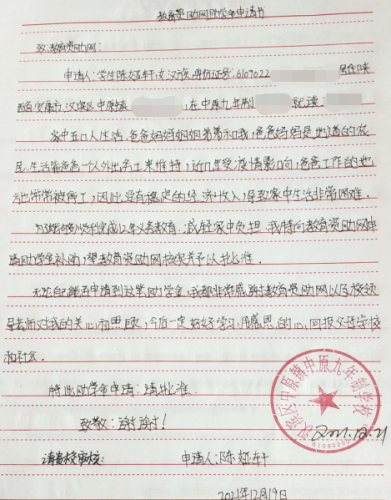 教育资助网助学金申请书
致:教育资助网:
申请人:学生陈娅轩,女,汉族,身份证号:6107022 居住陕
西省安康市汉滨区中原镇 ,在中原九年制 就读
家中五口人生活,爸爸妈妈姐姐弟弟和我,爸爸妈妈是地道的农
民,生活靠爸爸一人外出务工来维持;近几年受疫情影响,爸爸工作的地
方也常常被停工,因此没有稳定的经济收入,导致家中生活非常困难。
为了能够顺利完成12年义务教育,减轻家中负担,我特向教育资助网申
请助学金补助,望教育资助网核实关予以批准。
无论自己能否申请到这笔助学金,我都非常感谢教育资助网以及学校领
导老师对我的关心和照顾,今后一定好好学习,用感恩的心,回报父母学校
和社会。
特此助学金申请:请批准
致敬:谢谢!
汉滨区中原镇中原九年制学校
2021.12.21
请贵校审核: 申请人:陈娅轩
2021年12月19日